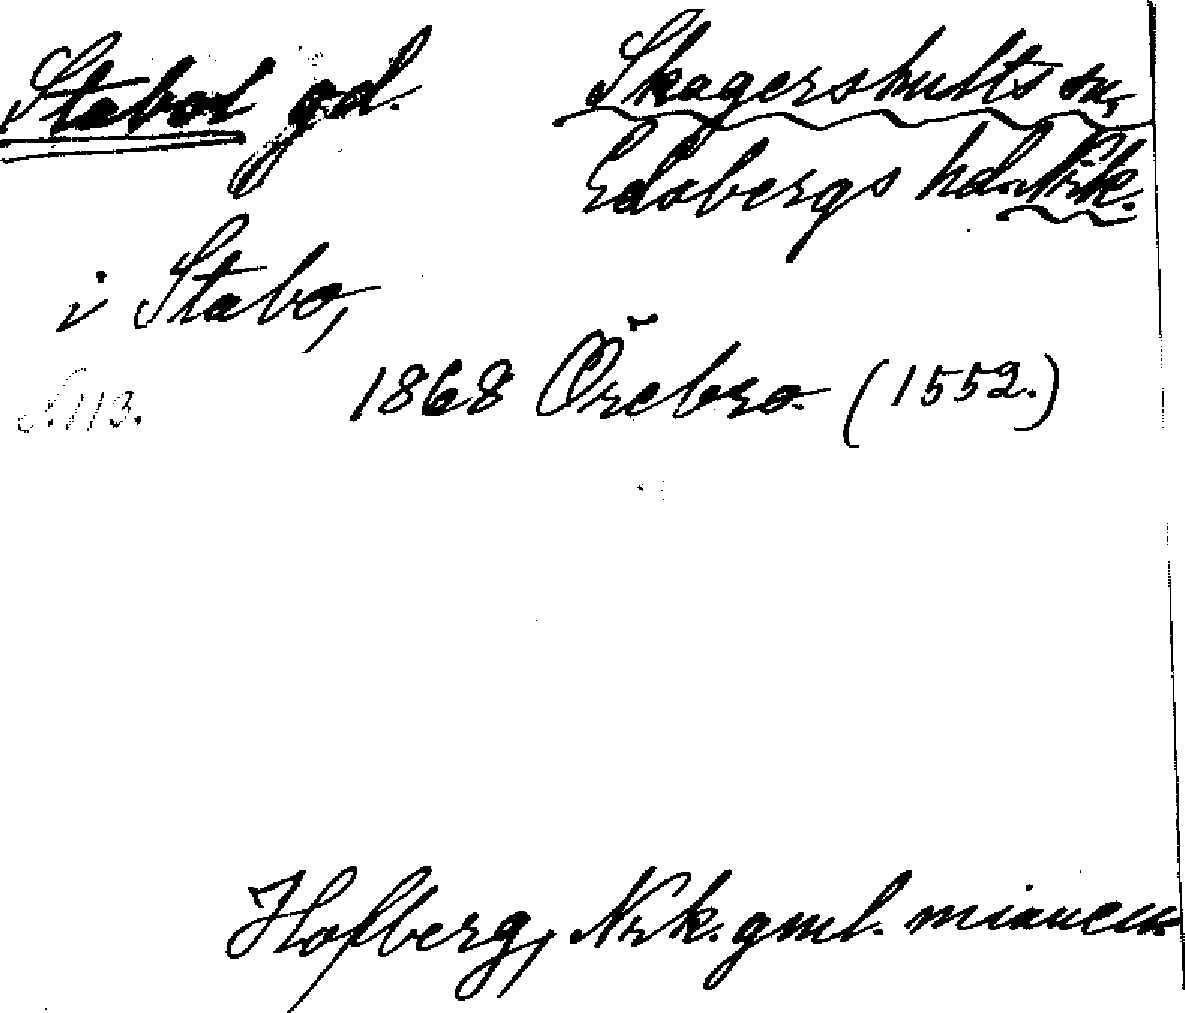 Stabod gd. Skagershults sn,
Edsbergs hd. Nrk.
i Stabo,
S. 113. 1868 Örebro. (1552.)
Hofberg, Nrk. gml. minnen